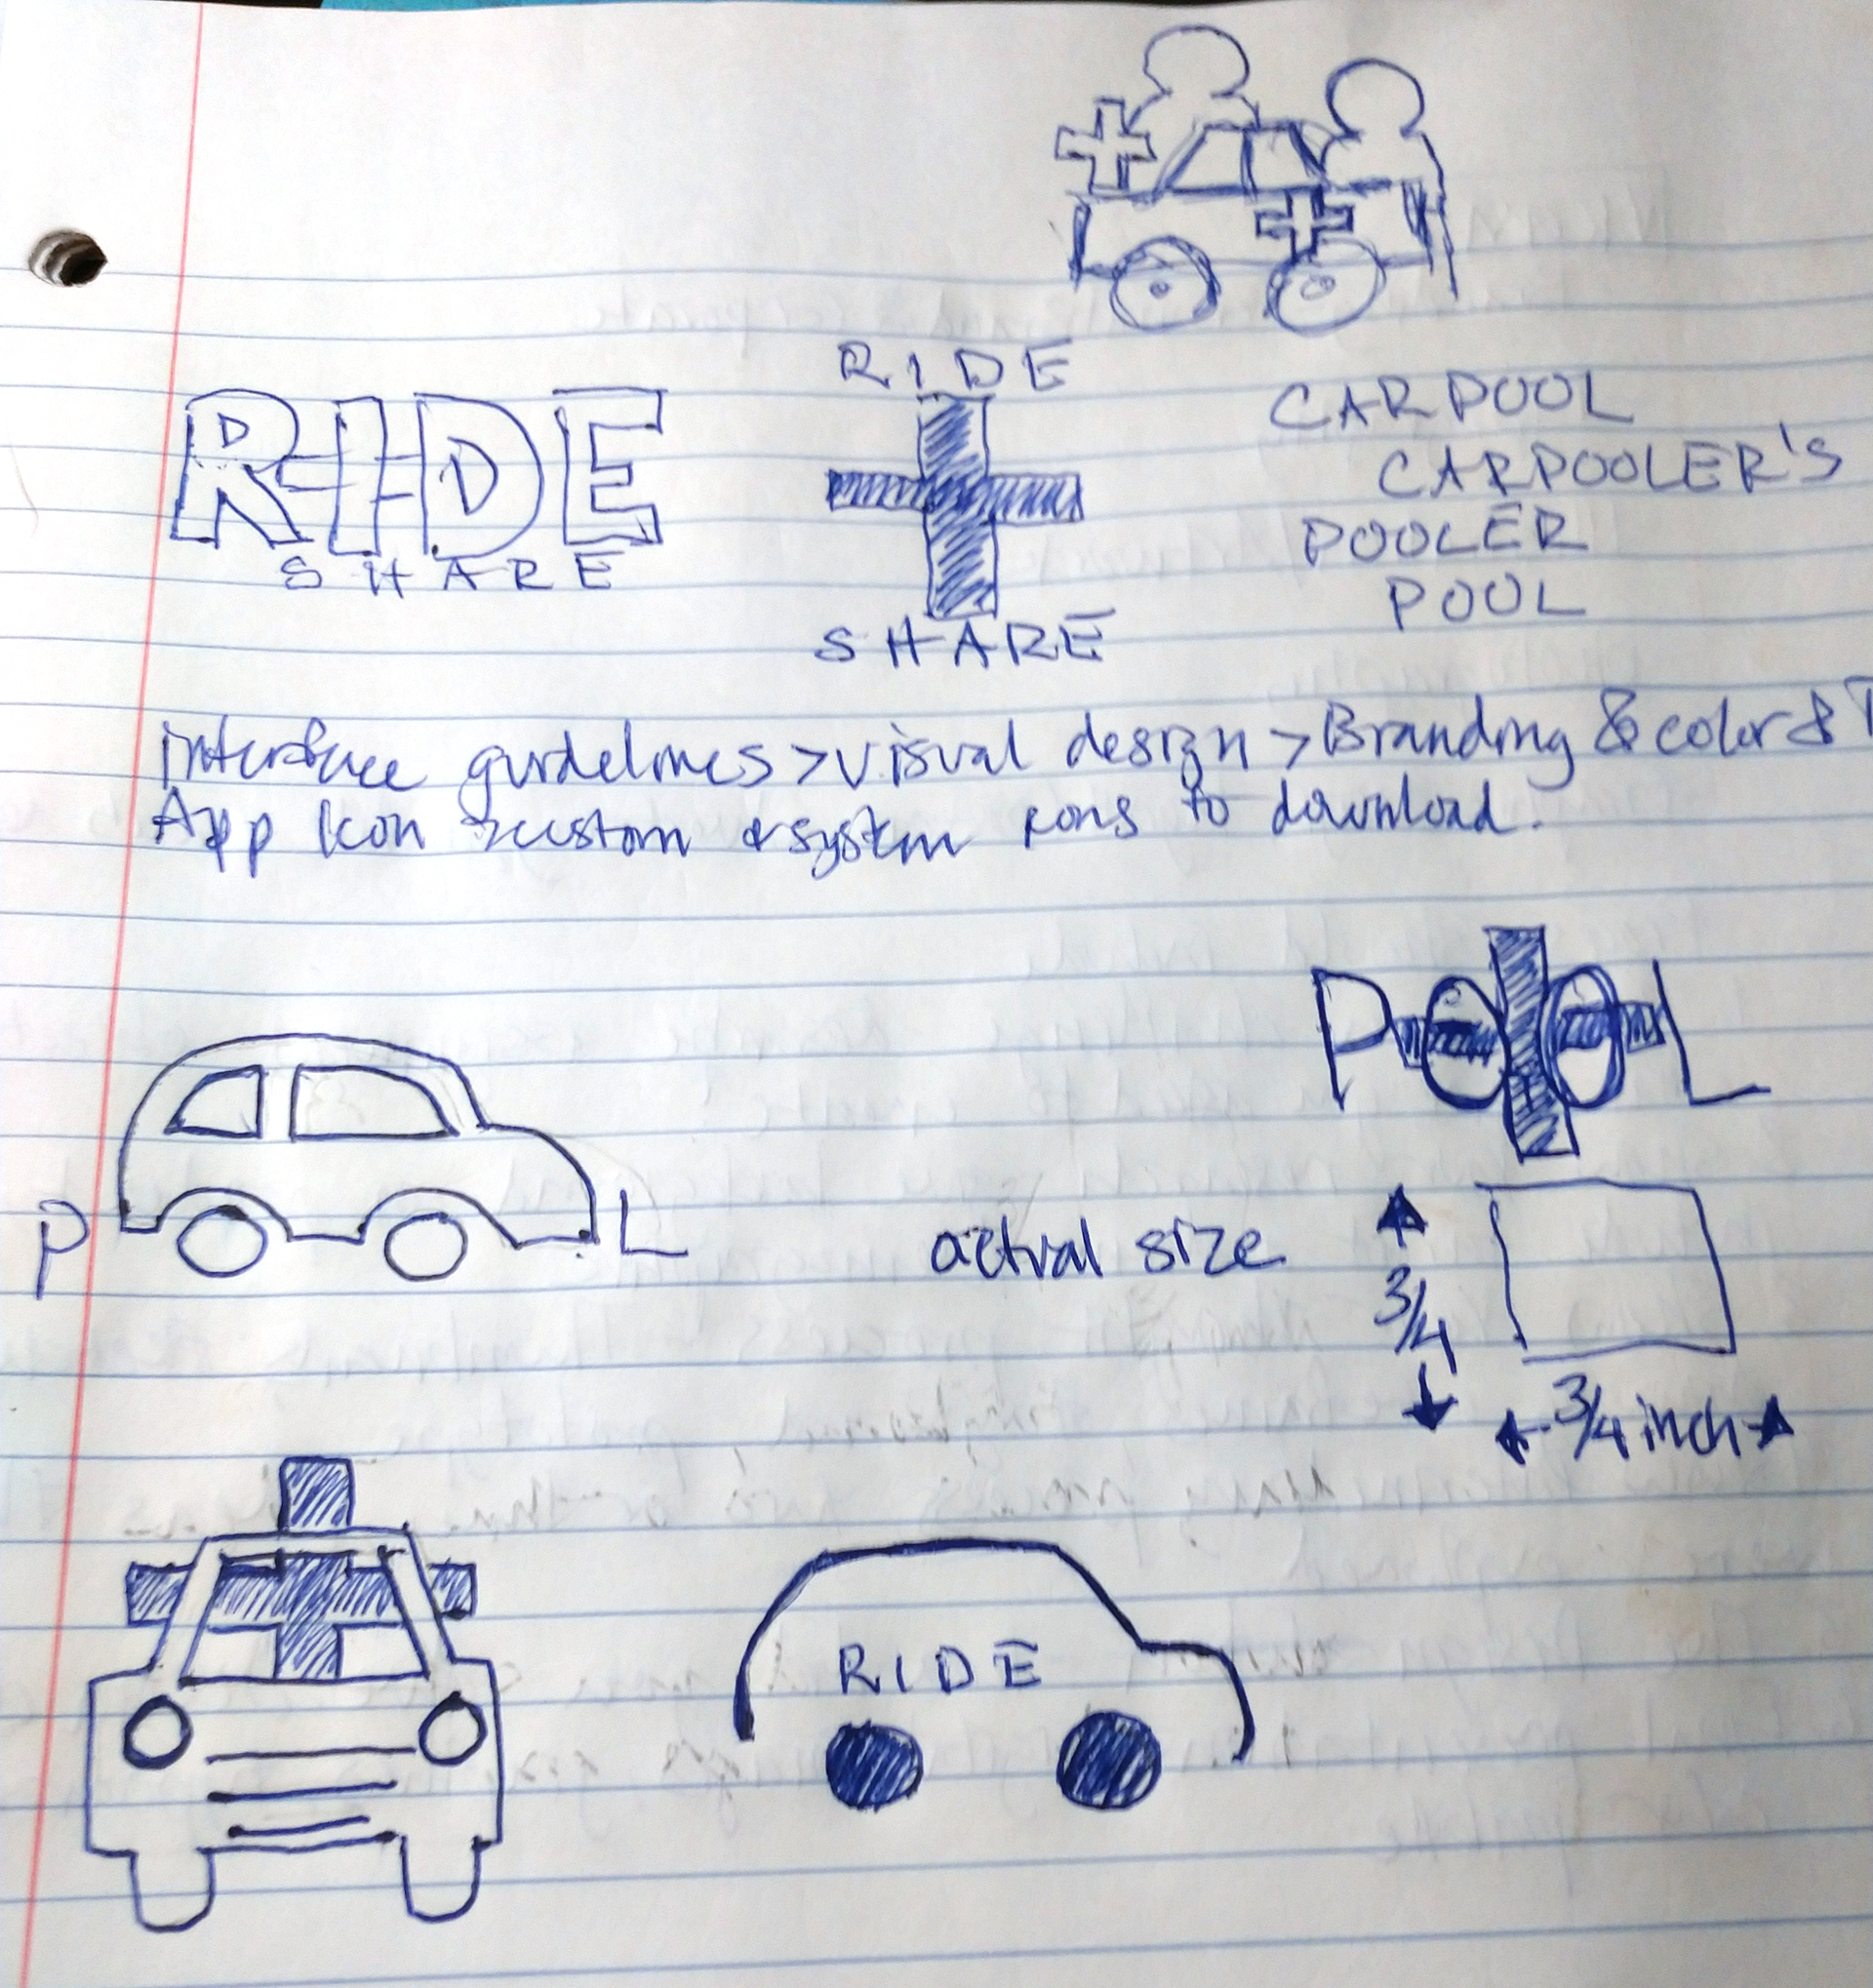 RIDE
SHARE
RIDE
SHARE
CARPOOL
CARPOOLER'S
POOLER
POOL
interface guidelines > visual design > Branding & color & T
App Icon > custom & system icons to download.
POOL
P L
actual size
3/4
3/4 inch
RIDE